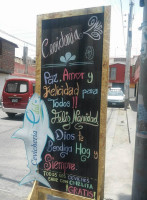 Cevichería
Paz, Amor y
Felicidad para
Todos!!
Feliz Navidad
Dios te
Bendiga Hoy y
Siempre
Todos los
GRATIS
Cevichería